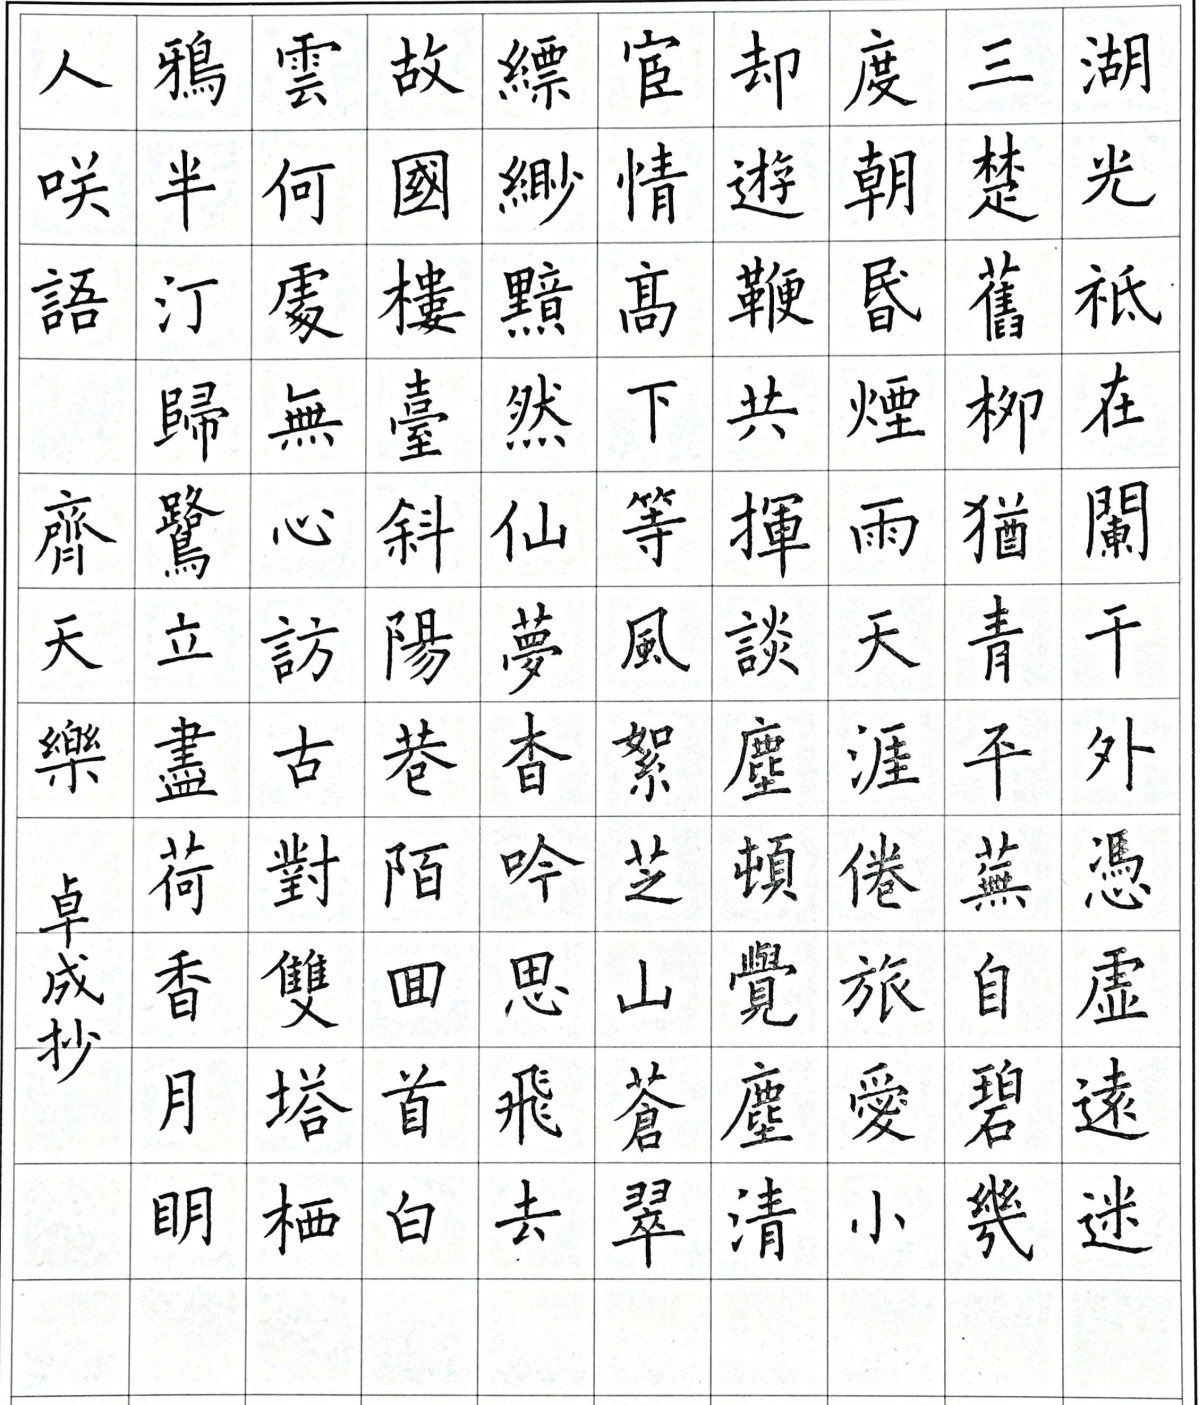 湖光祇在闌干外憑虛遠迷
三楚舊柳猶青平蕪自碧幾
度朝昏煙雨天涯倦旅愛小
却遊鞭共揮談塵頓覺塵清
宦情高下等風絮芝山蒼翠
縹緲黯然仙夢杳吟思飛去
故國樓臺斜陽巷陌回首白
雲何處無心訪古對雙塔栖
鴉半汀歸鷺立盡荷香月明
人咲語 齊天樂
卓成抄